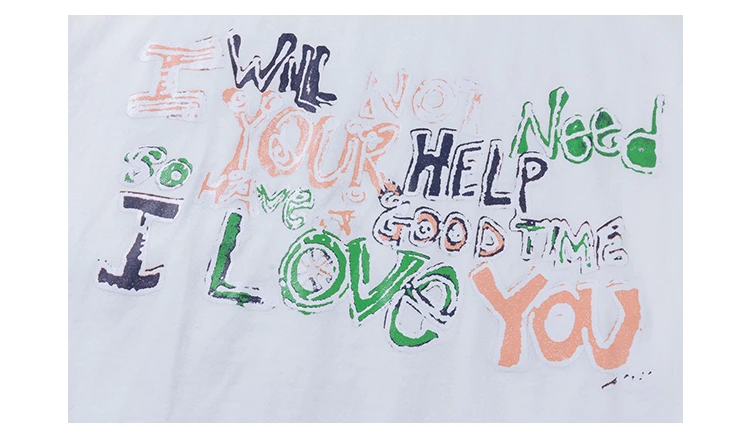 I WILL NOT Need
YOUR HELP
So HAVe A GOOD TIME
I LOVe YOU